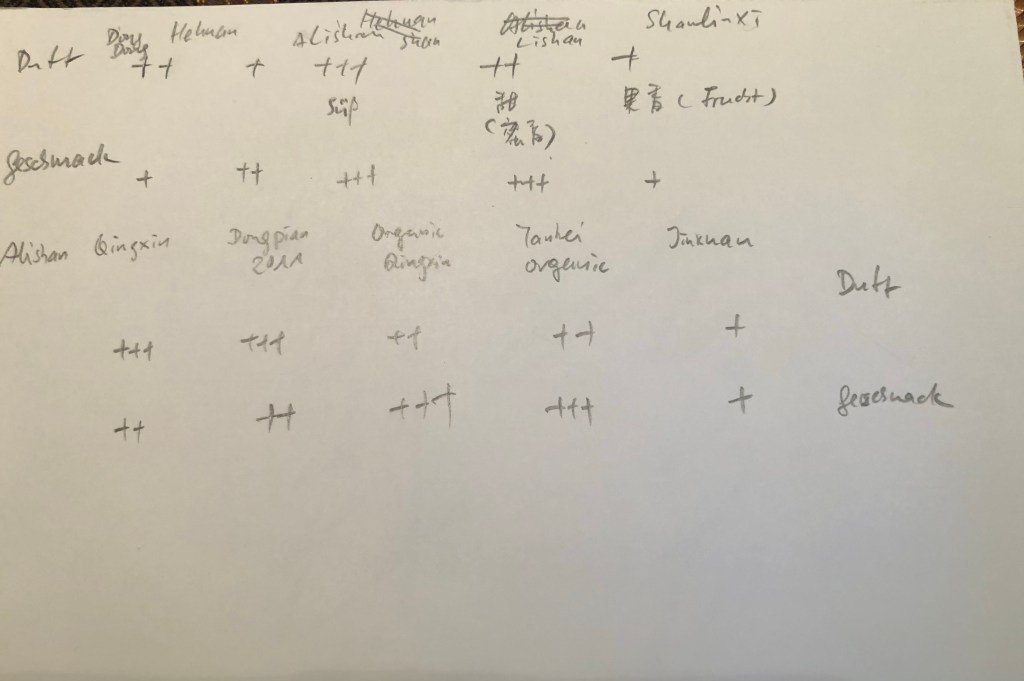 Dong Hehuan Alishan Hehuan Alishan Shanlinxi
Dong shan Lishan
Duft ++ + +++ ++ +
süß 甜 果香 (Frucht)
(蜜香)
Geschmack + ++ +++ +++ +
Alishan Qingxin Dongpian Organic Jinxuan
2011 Qingxin organic
Duft
+++ +++ ++ ++ +
++ ++ +++ +++ + Geschmack